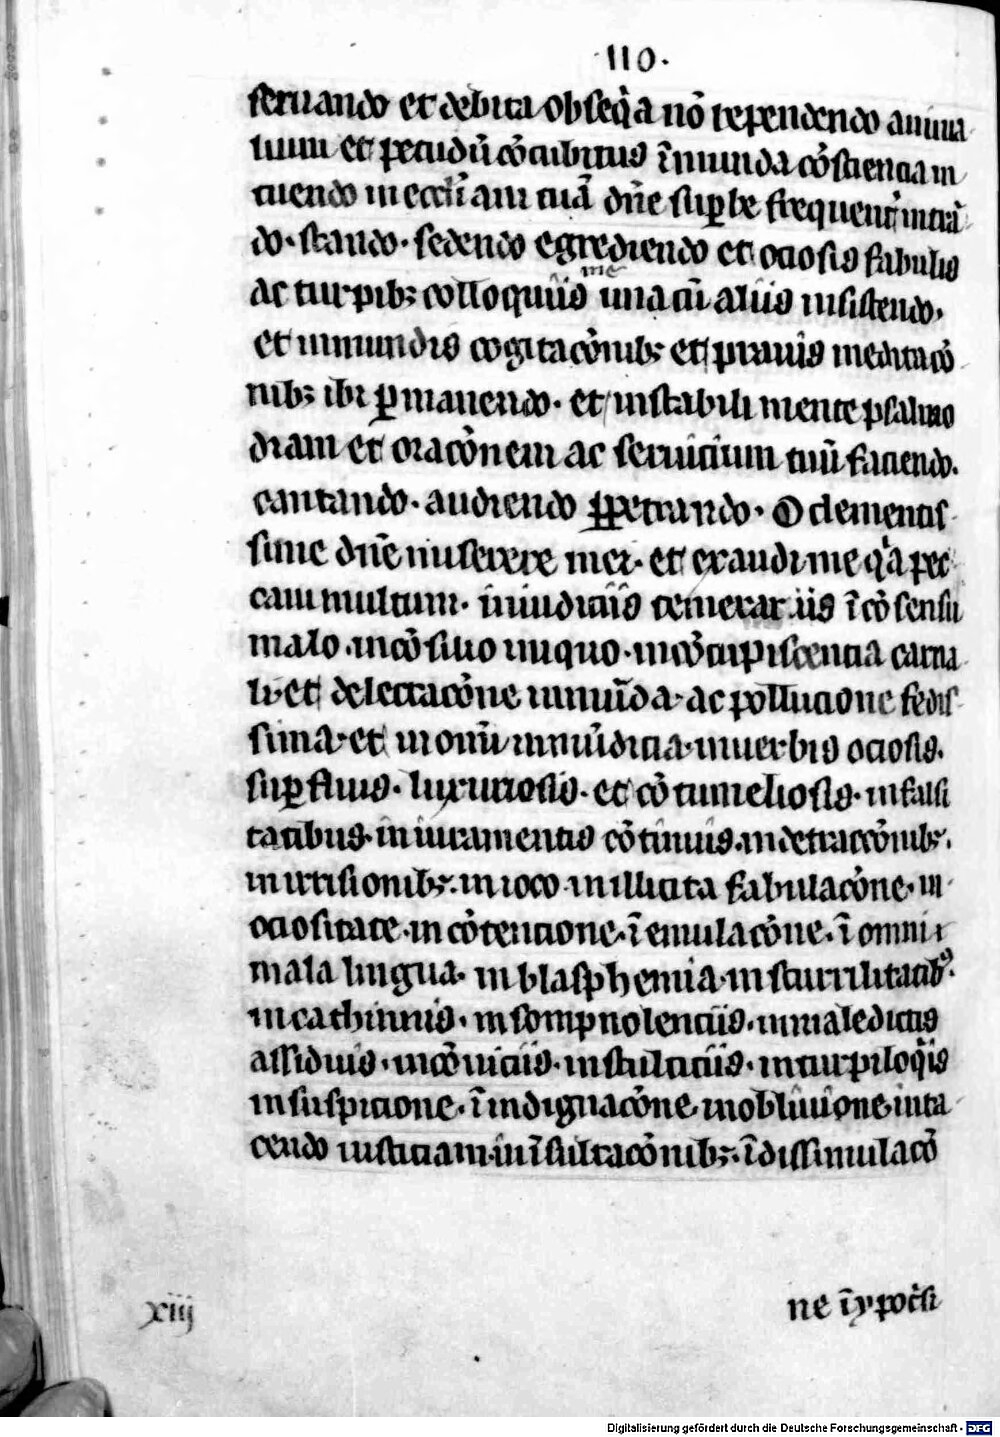 ·110·
seruando et debita obseq̇a nō rependendo anima
lium et pecudū cōcubitus ī munda cōsciencia in
tuendo in eccliam tuā dn̄e suꝑbe frequenť intrā
do· stando· sedendo egrediendo et ociosis fabulis
me
ac turpibꝫ colloquiis una cū aliis insistendo·
et inmundis cogitacōnibꝫ et prauis meditacō
nibꝫ ibi ꝑmanendo· et instabili mente psalmo
diam et oracōnem ac seruicium tuū faciendo·
cantando· audiendo ꝑpetrando· O clementis
sime dn̄e miserere mei· et exaudi me q̇a pec
caui multum· in iudiciis temerariis ī cōsensu
malo· in cōsilio iniquo· in cōcupiscencia carna
li· et delectacōne inmūda· ac pollucione fedis
sima· et in om̄i inmūdicia· in uerbis ociosis·
suꝑfluis· luxuriosis· et cōtumeliosis· in falsi
tatibus· in iuramentis cōtinuis· in detraccōnibꝫ·
in irrisionibꝫ· in ioco· in illicita fabulacōne· in
ociositate· in cōtencione· ī emulacōne· ī omni
mala lingua· in blasphemia· in scurrilitatibꝰ·
in cachinnis· in sompnolenciis· in maledictis
assiduis· in cōuiciis· in stulticiis· in turpiloq̇is
in suspicione· ī indignacōne· in obliuione· in ta
cendo iusticiam· in īsultacōnibꝫ· ī dissimulacō
ne īypoc̍si
xiij
Digitalisierung gefördert durch die Deutsche Forschungsgemeinschaft - DFG